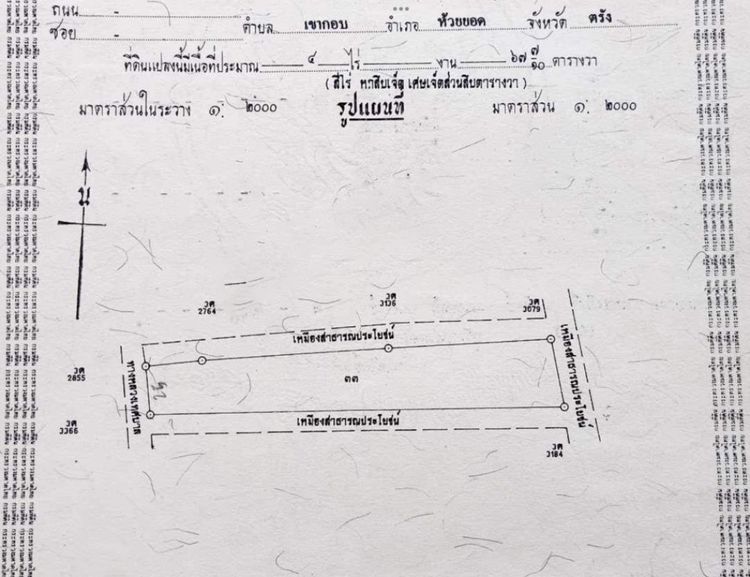 ถนน -
ซอย - ตำบล เขากอบ อำเภอ ห้วยยอด จังหวัด ตรัง
ที่ดินแปลงนี้มีเนื้อที่ประมาณ ๔ ไร่ - งาน ๖๗ ๗/๑๐ ตารางวา
( สี่ไร่ หกสิบเจ็ด เศษเจ็ดส่วนสิบตารางวา )
มาตราส่วนในระวาง ๑: ๒๐๐๐ รูปแผนที่ มาตราส่วน ๑: ๒๐๐๐
น
วค
2764
วค
3136
วค
3079
เหมืองสาธารณประโยชน์
เหมืองสาธารณประโยชน์
ทางหลวงเทศบาล
วค
2855
๓๓
วค
3366
เหมืองสาธารณประโยชน์
วค
3184